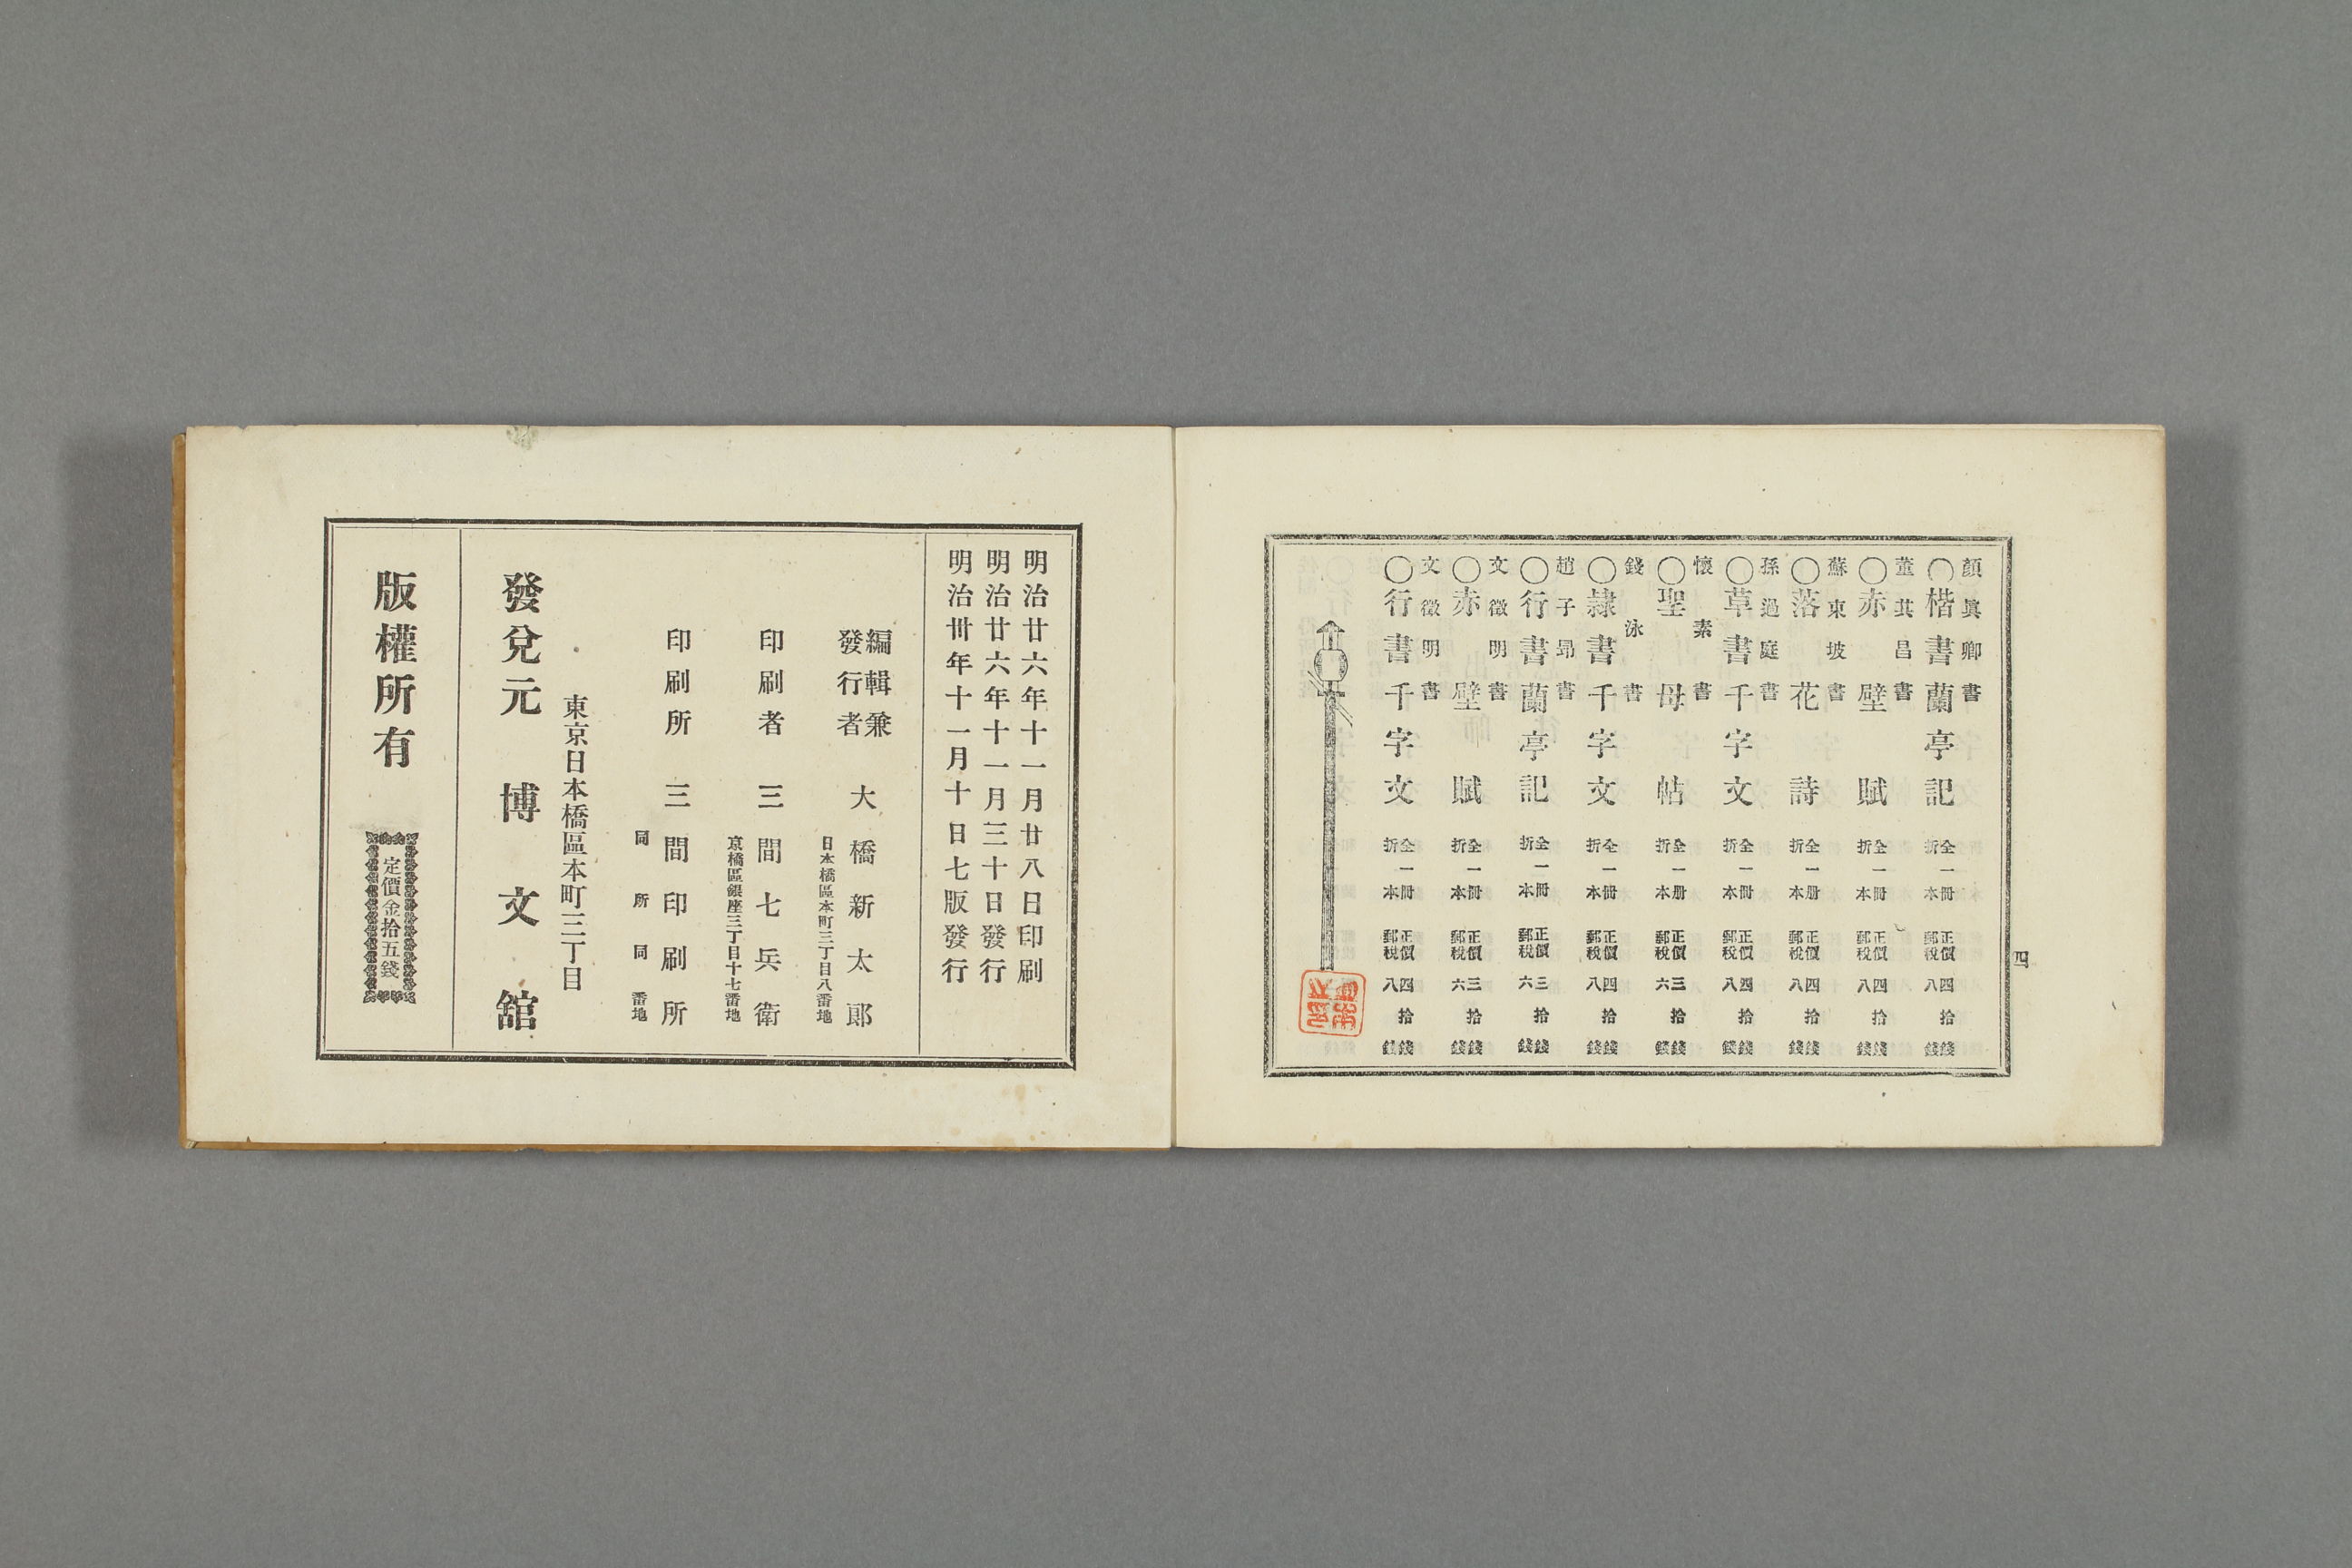 四
顏眞卿書
〇楷書蘭亭記 全一冊 折本 正價四拾錢 郵稅八錢
董其昌書
〇赤壁賦 全一冊 折本 正價四拾錢 郵稅八錢
蘇東坡書
〇落花詩 全一册 折本 正價四拾錢 郵稅八錢
孫過庭書
〇草書千字文 全一冊 折本 正價四拾錢 郵稅八錢
懷素書
〇聖母帖 全一册 折本 正價三拾錢 郵稅六錢
錢泳書
〇隷書千字文 全一冊 折本 正價四拾錢 郵稅八錢
趙子昻書
〇行書蘭亭記 全一冊 折本 正價三拾錢 郵稅六錢
文徵明書
〇赤壁賦 全一冊 折本 正價三拾錢 郵稅六錢
文徵明書
〇行書千字文 全一冊 折本 正價四拾錢 郵稅八錢
明治廿六年十一月廿八日印刷
明治廿六年十一月三十日發行
明治卅年十一月十日七版發行
編輯兼發行者 大橋新太郎
日本橋區本町三丁目八番地
印刷者 三間七兵衛
京橋區銀座三丁目十七番地
印刷所 三間印刷所
同所同番地
東京日本橋區本町三丁目
發兌元 博文舘
版權所有
定價金拾五錢